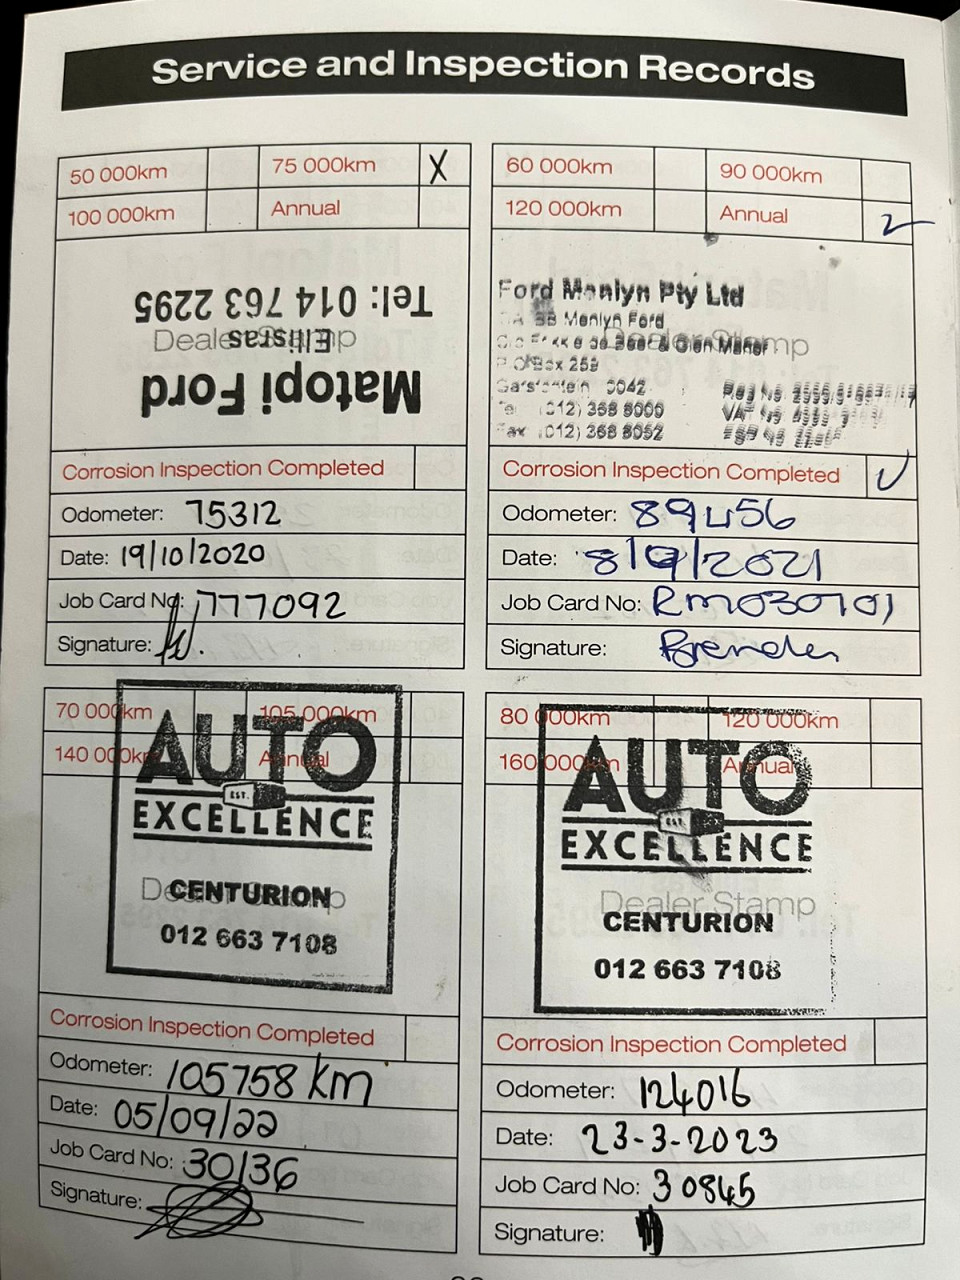 Service and Inspection Records
50 000km 75 000km X
100 000km Annual
Tel: 014 763 2295
Dealer Stamp
Ellisras
Matopi Ford
Corrosion Inspection Completed
Odometer: 75312
Date: 19/10/2020
Job Card No: 777092
Signature:
60 000km 90 000km
120 000km Annual
Ford Menlyn Pty Ltd
Menlyn Ford
Dealer Stamp
& Glen Manor
Box 259
0042
(012) 368 8000
Fax (012) 368 8052
Corrosion Inspection Completed ✓
Odometer: 89456
Date: 8/9/2021
Job Card No: RM030701
Signature: Brenden
70 000km 105 000km
140 000km Annual
AUTO
EST.
EXCELLENCE
Dealer Stamp
CENTURION
012 663 7108
Corrosion Inspection Completed
Odometer: 105758 km
Date: 05/09/22
Job Card No: 30136
Signature:
80 000km 120 000km
160 000km Annual
AUTO
EST.
EXCELLENCE
Dealer Stamp
CENTURION
012 663 7108
Corrosion Inspection Completed
Odometer: 124016
Date: 23-3-2023
Job Card No: 30845
Signature: